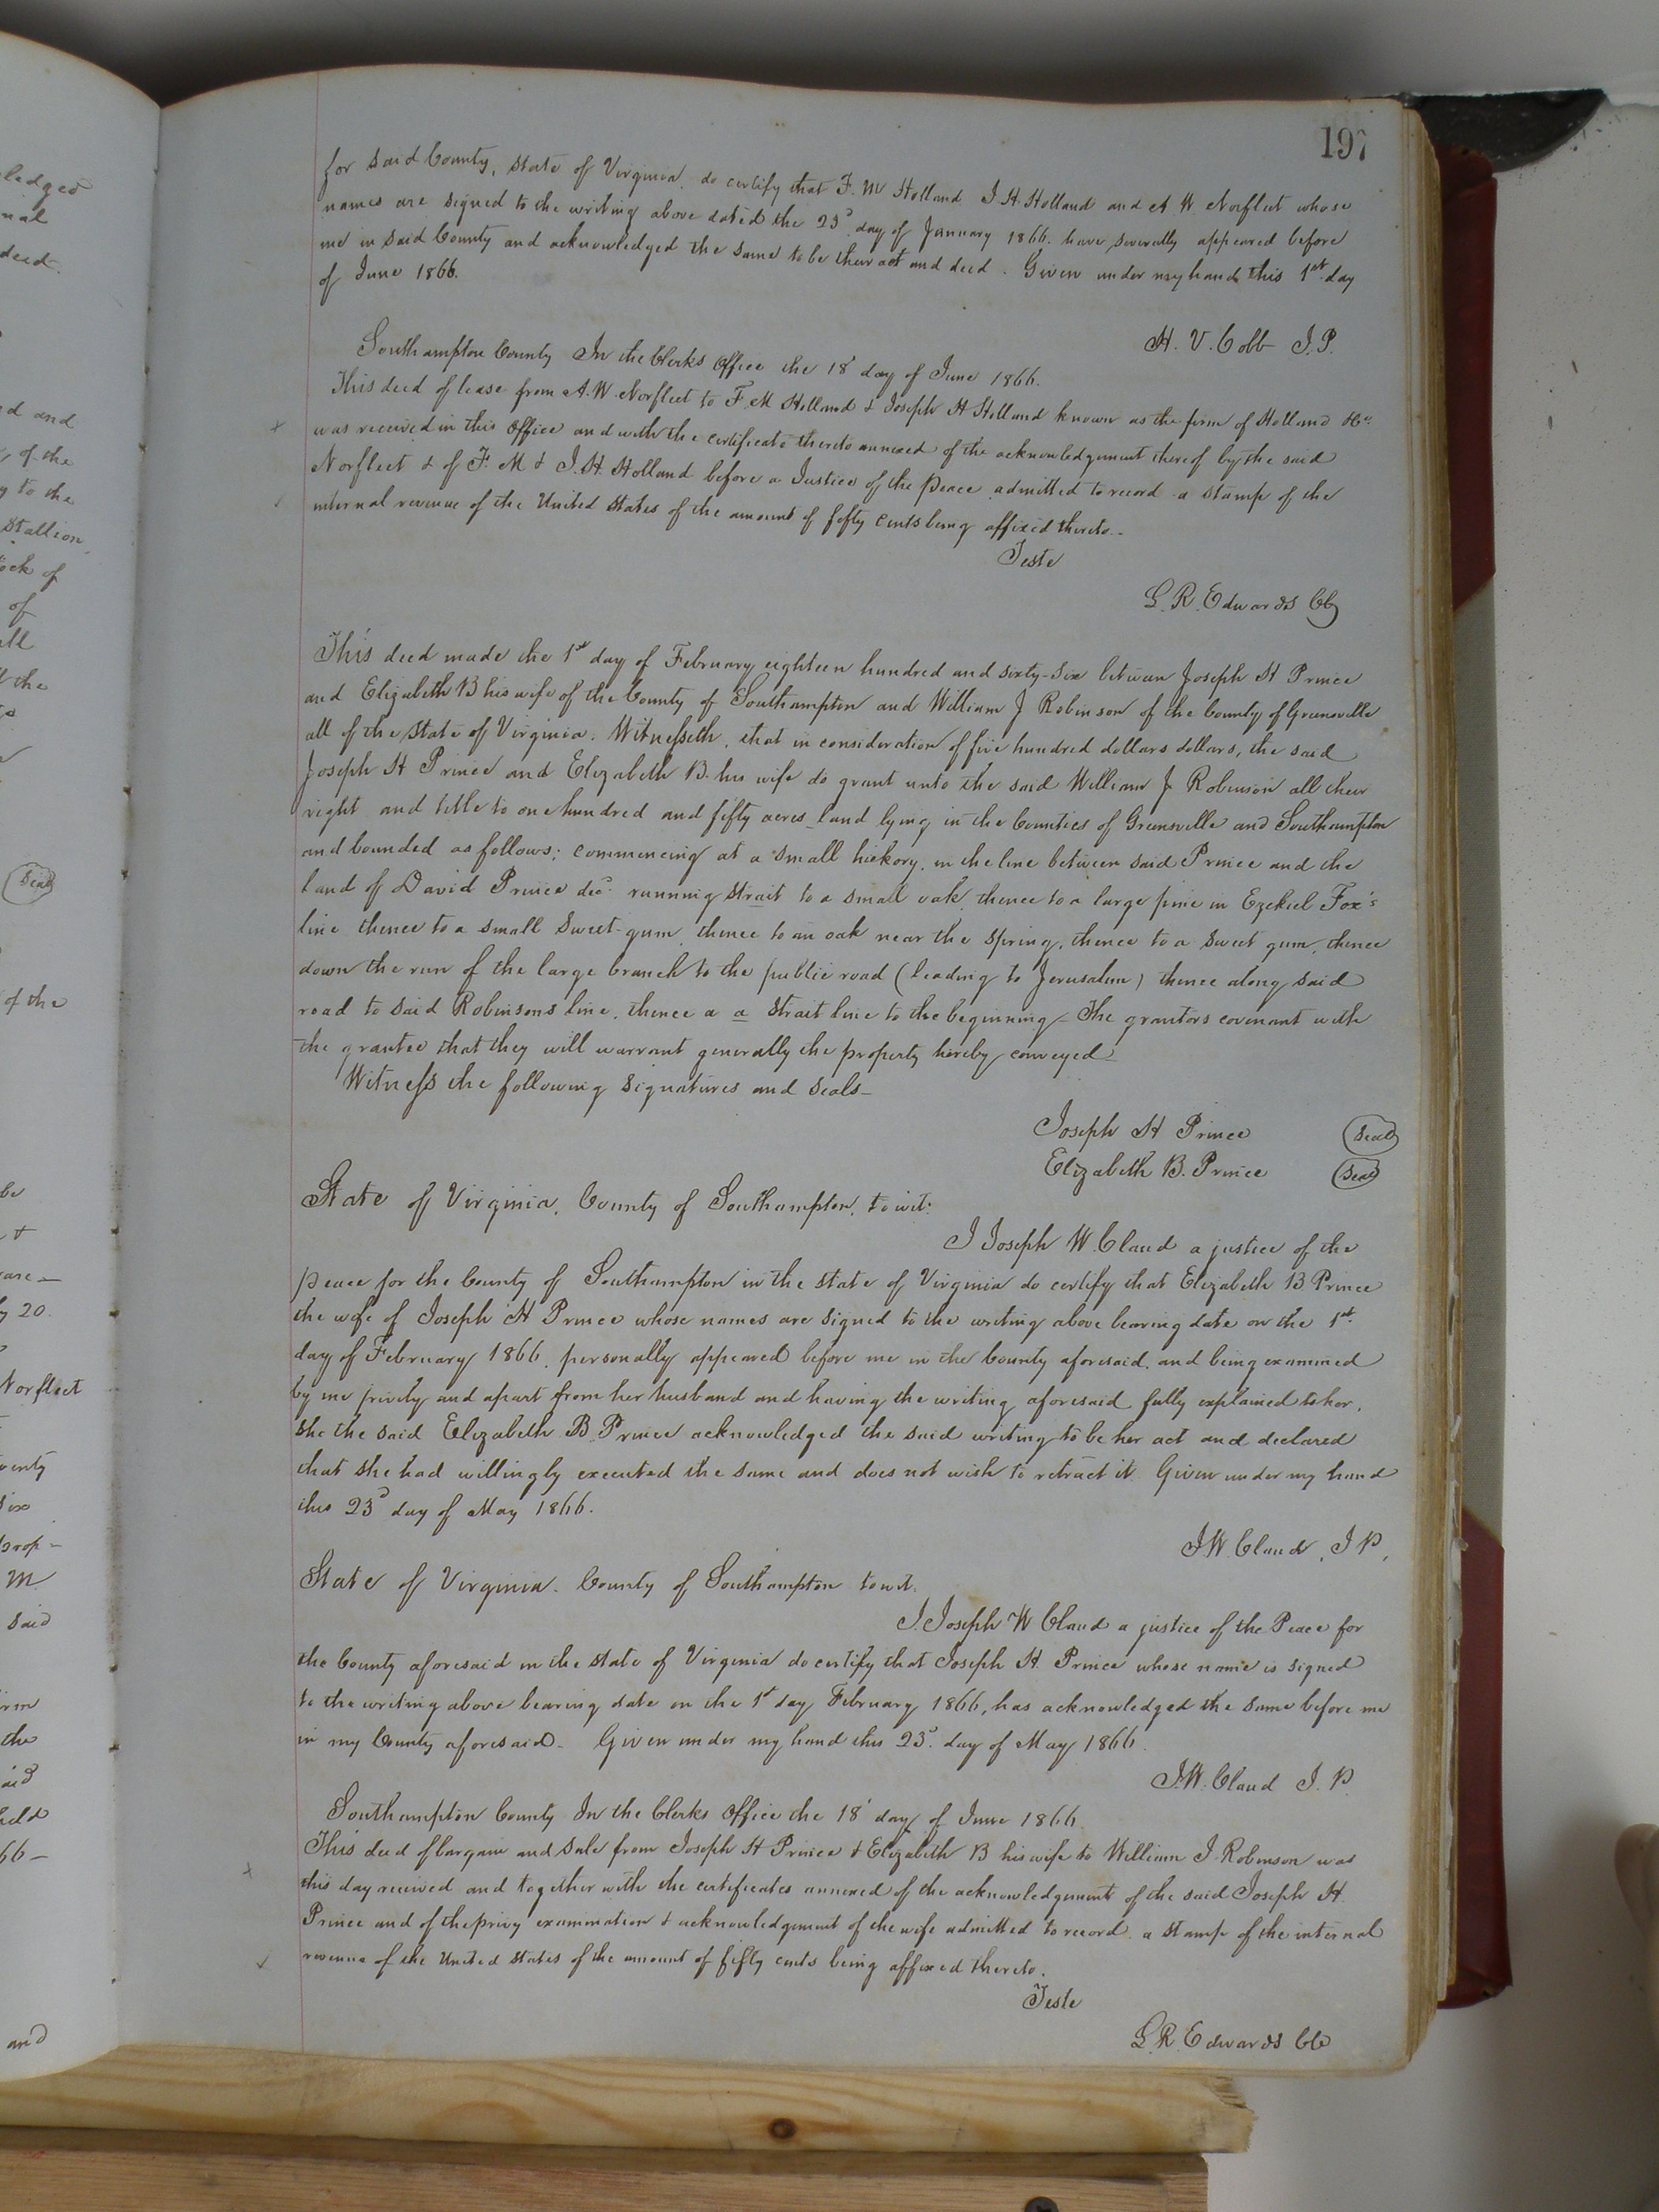 197
for said County, State of Virginia, do certify that F. M Holland J. H. Holland and A W. Norfleet whose
names are signed to the writing above dated the 23d day of January 1866. have severally appeared before
me in said County and acknowledged the same to be their act and deed. Given under my hand this 1st day
of June 1866.
H. V. Cobb J.P.
Southampton County In the Clerks Office the 18 day of June 1866.
This deed of lease from A. W. Norfleet to F. M Holland & Joseph H Holland known as the firm of Holland & Co
was received in this Office and with the certificate thereto annexed of the acknowledgement thereof by the said
Norfleet & of F. M & J. H. Holland before a Justice of the Peace admitted to record a stamp of the
internal revenue of the United States of the amount of fifty cents being affixed thereto.-
Teste
L. R. Edwards Clk
This deed made the 1st day of February eighteen hundred and sixty-six between Joseph H Prince
and Elizabeth B his wife of the County of Southampton and William J Robinson of the County of Greensville
all of the State of Virginia. Witnesseth, that in consideration of five hundred dollars dollars, the said
Joseph H Prince and Elizabeth B. his wife do grant unto the said William J Robinson all their
right and title to one hundred and fifty acres land lying in the Counties of Greensville and Southampton
and bounded as follows; commencing at a small hickory in the line between said Prince and the
land of David Prince decd running strait to a small oak, thence to a large pine in Ezekiel Fox's
line thence to a small sweet-gum, thence to an oak near the spring, thence to a sweet gum, thence
down the run of the large branch to the public road (leading to Jerusalem) thence along said
road to said Robinsons line, thence a a strait line to the beginning- The grantors covenant with
the grantee that they will warrant generally the property hereby conveyed-
Witness the following signatures and seals-
Joseph H Prince Seal
Elizabeth B. Prince Seal
State of Virginia, County of Southampton, to wit:
I Joseph W. Claud a justice of the
peace for the County of Southampton in the State of Virginia do certify that Elizabeth B Prince
the wife of Joseph H Prince whose names are signed to the writing above bearing date on the 1st
day of February 1866, personally appeared before me in the County aforesaid, and being examined
by me privily and apart from her husband and having the writing aforesaid fully explained to her,
she the said Elizabeth B. Prince acknowledged the said writing to be her act and declared
that she had willingly executed the same and does not wish to retract it. Given under my hand
this 23d day of May 1866.
J. W. Claud, J P,
State of Virginia. County of Southampton to wit.
I. Joseph W Claud a justice of the Peace for
the County aforesaid in the State of Virginia do certify that Joseph H. Prince whose name is signed
to the writing above bearing date on the 1st day February 1866, has acknowledged the same before me
in my County aforesaid- Given under my hand this 23d. day of May 1866.
J. W. Claud J. P.
Southampton County In the Clerks Office the 18 day of June 1866.
This deed of bargain and sale from Joseph H Prince & Elizabeth B his wife to William J. Robinson was
this day received and together with the certificates annexed of the acknowledgement of the said Joseph H.
Prince and of the privy examination & acknowledgement of the wife admitted to record a stamp of the internal
revenue of the United States of the amount of fifty cents being affixed thereto.
Teste
L. R. Edwards Clk